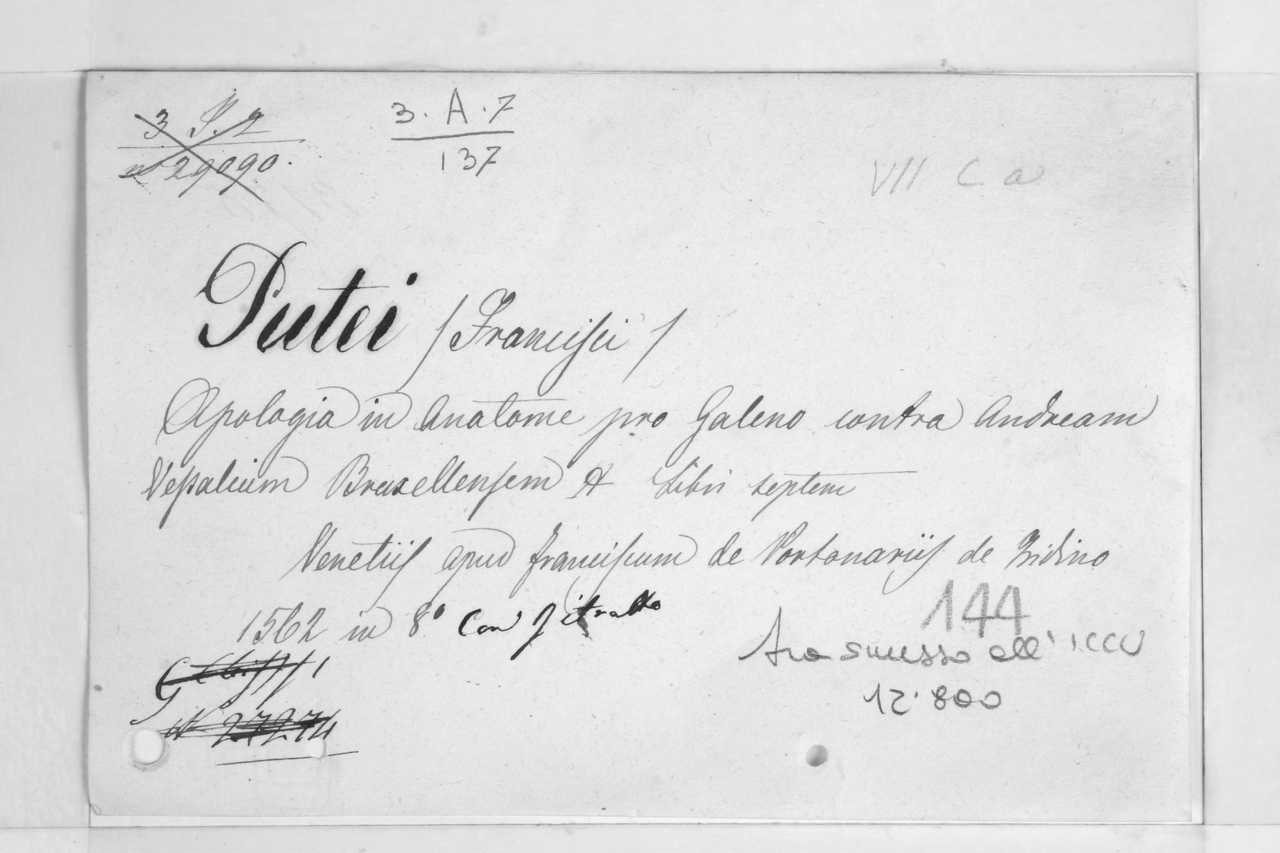 3 P. 2
n° 29090.
3. A. 7
137
VII C a
Putei (Francisci)
Apologia in Anatome pro Galeno contra Andream
Vesalium Bruxellensem & Libri septem
Venetiis apud Franciscum de Portonariis de Tridino
1562 in 8° con ritratto
144
Trasmesso all'ICCU
n° 27274
12.800